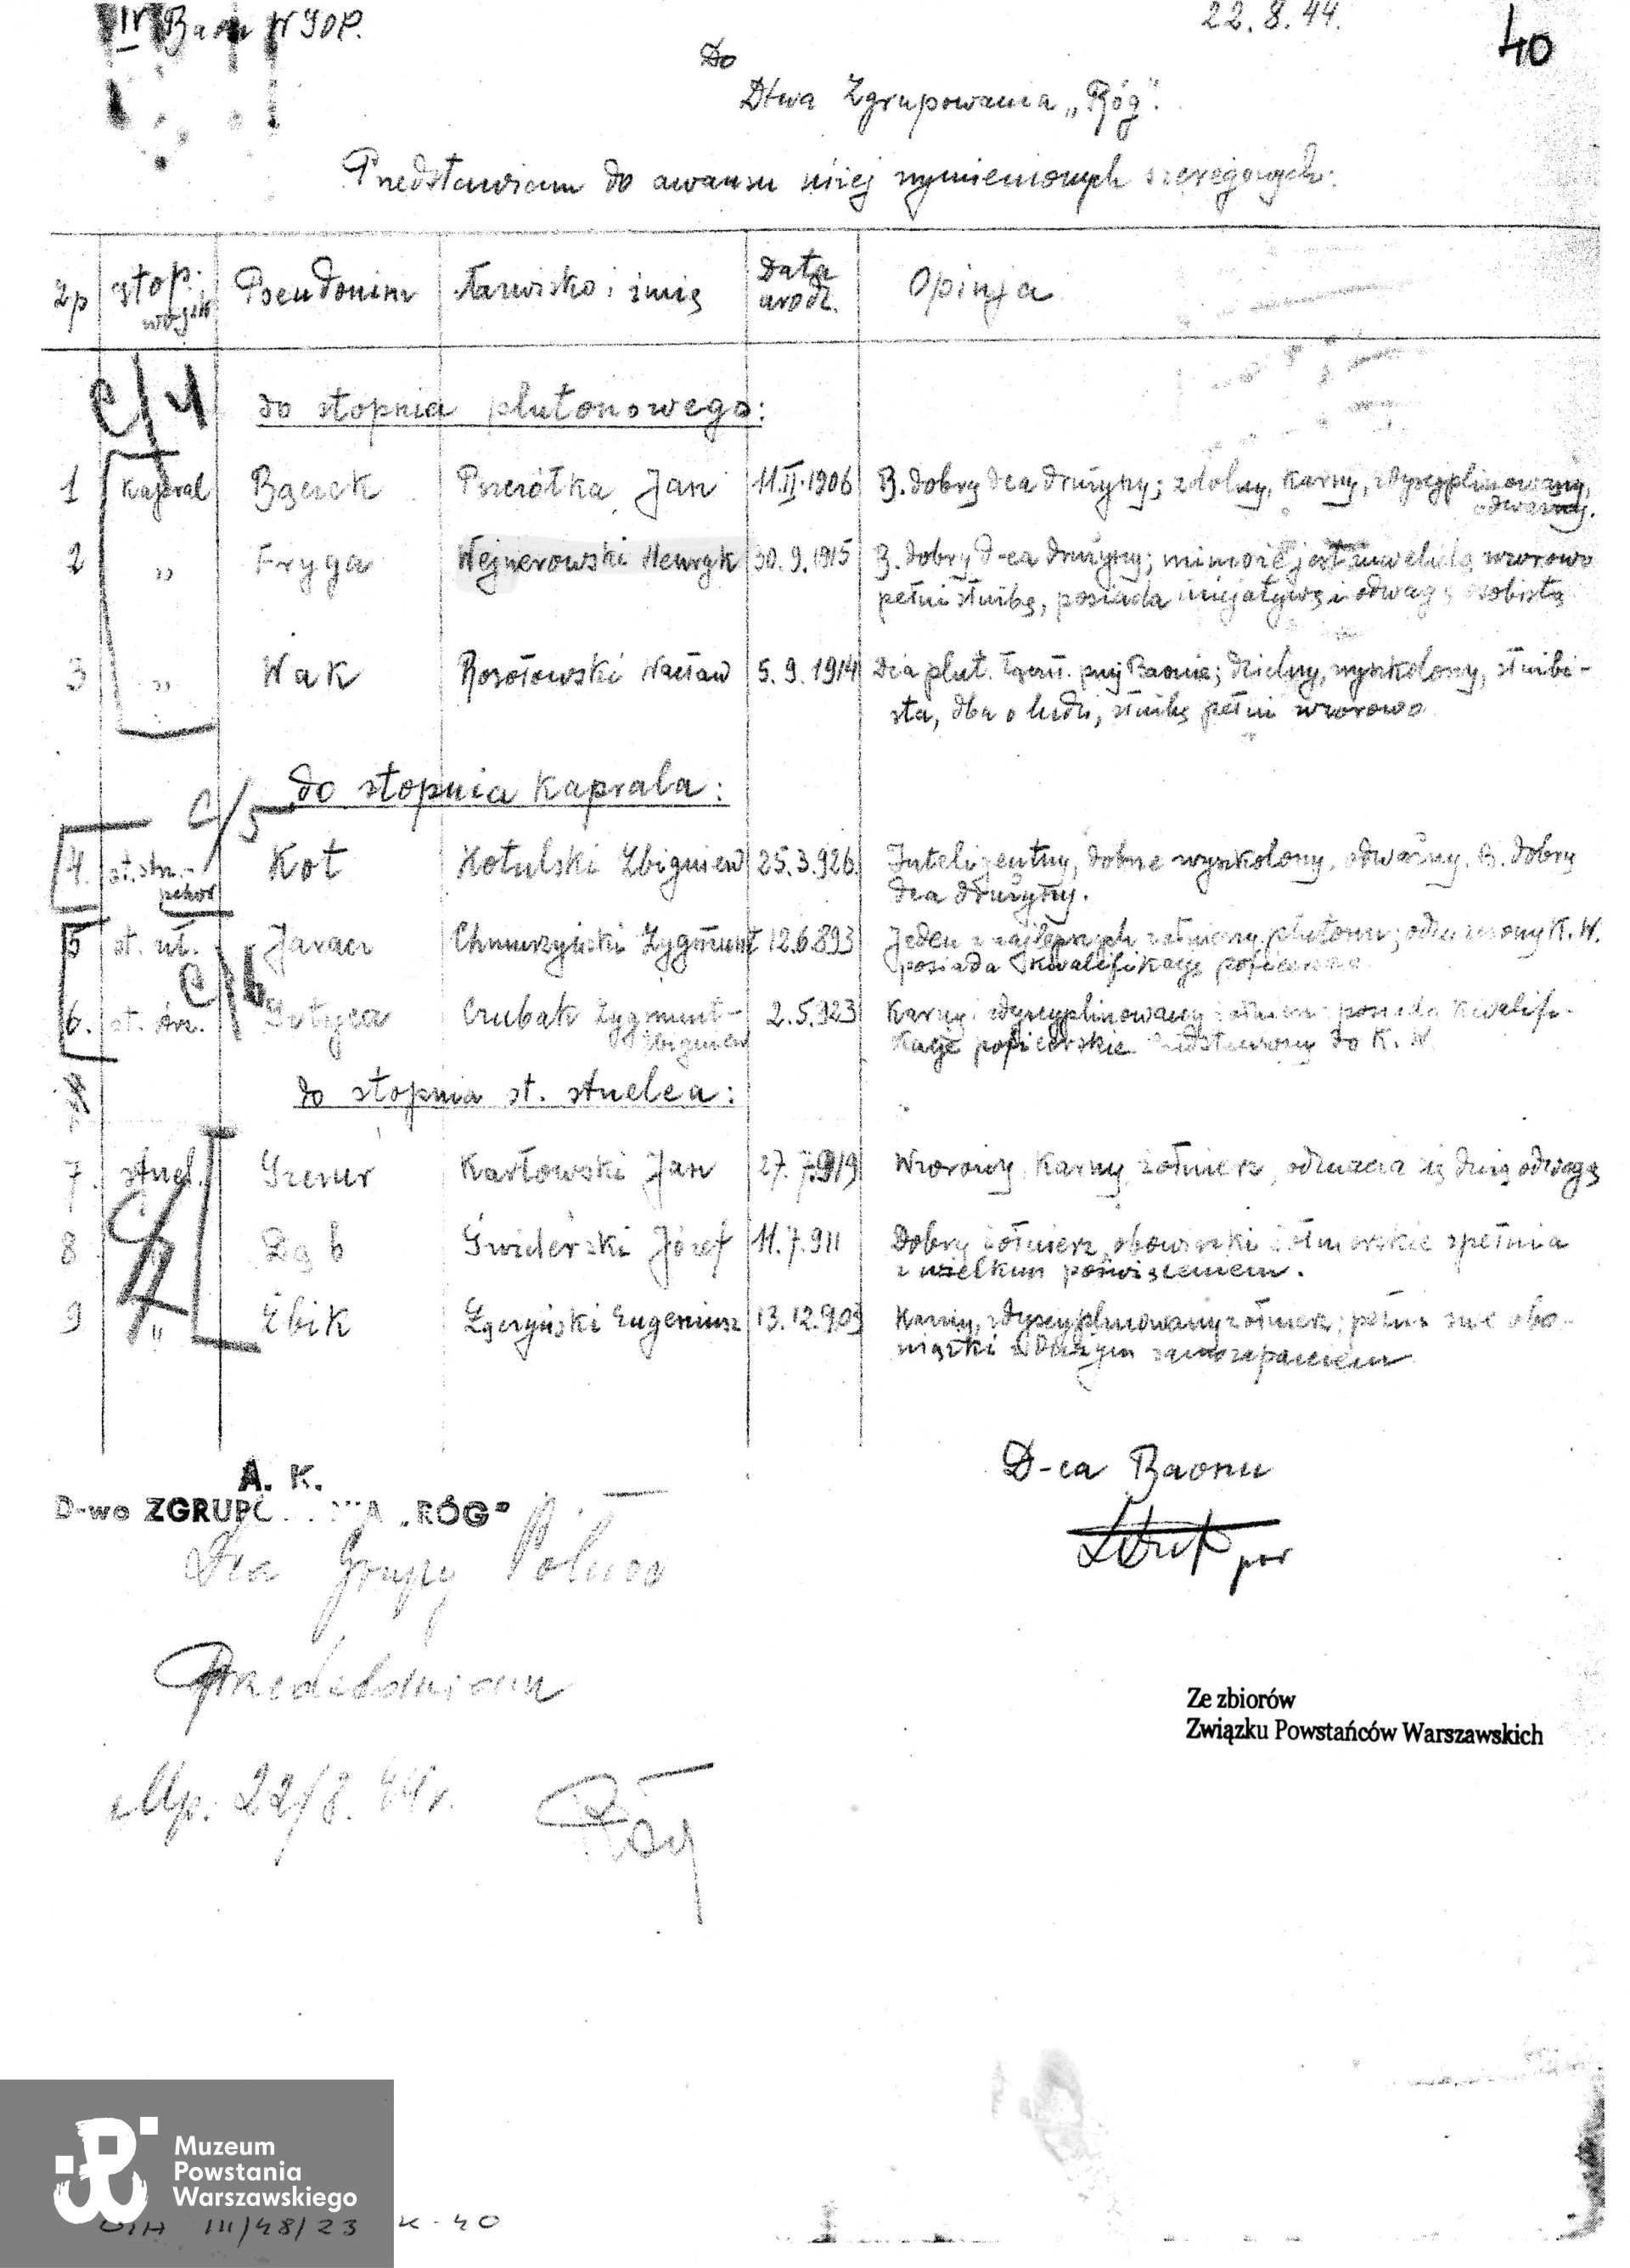 IV Baon WSOP.
22.8.44.
40
Do
Dtwa Zgrupowania „Róg".
Przedstawiam do awansu niżej wymienionych szeregowych:
Lp stop. wojsk Pseudonim Nazwisko i imię Data urodz. Opinja
C/4
do stopnia plutonowego:
1 Kapral Bącek Pszczółka Jan 11.II.1906 B. dobry dca drużyny; zdolny, karny, zdyscyplinowany,
odważny.
2 " Fryga Wejnerowski Henryk 30.9.1915 B. dobry d-ca drużyny; mimo że jest inwelidą wzorowo
pełni służbę, posiada inicjatywę i odwagę osobistą
3 " Wak Rosołowski Wacław 5.9.1914 Dca plut. łączn. przy Baonie; dzielny, wyszkolony, służbi-
sta, dba o ludzi, służbę pełni wzorowo
do stopnia kaprala:
C/5
4. st. strz.- pchor Kot Kotulski Zbigniew 25.3.926. Inteligentny, dobrze wyszkolony, odważny. B. dobry
dca drużyny.
5 st. uł. Jaracz Chmurzyński Zygmunt 12.6.893 Jeden z najlepszych żołnierzy plutonu; odznaczony K.W.
posiada kwalifikacje
C/6
6. st. Czubak Zygmunt- 2.5.923 Karny, zdyscyplinowany żołnierz posiada kwalifi-
Zbigniew kacje poficerskie. Przedstawiony do K. W.
do stopnia st. strzelca:
7. strzel. Karłowski Jan 27.7.919 Wzorowy, karny żołnierz, odznacza się dużą odwagą
C/7
8 Dąb Świderski Józef 11.7.911 Dobry żołnierz, obowiązki żołnierskie spełnia
z wielkim poświęceniem.
9 " Żbik Zgczyński Eugeniusz 13.12.903 Karny, zdyscyplinowany żołnierz; pełni swe obo-
wiązki z dużym samozaparciem
D-ca Baonu
por
A. K.
D-wo ZGRUPO A „RÓG"
Dca Grupy Północ
Przedstawiam
Mp. 22/8. 44 r.
Róg
Ze zbiorów
Związku Powstańców Warszawskich
Muzeum
Powstania
Warszawskiego
III/48/23 K-40